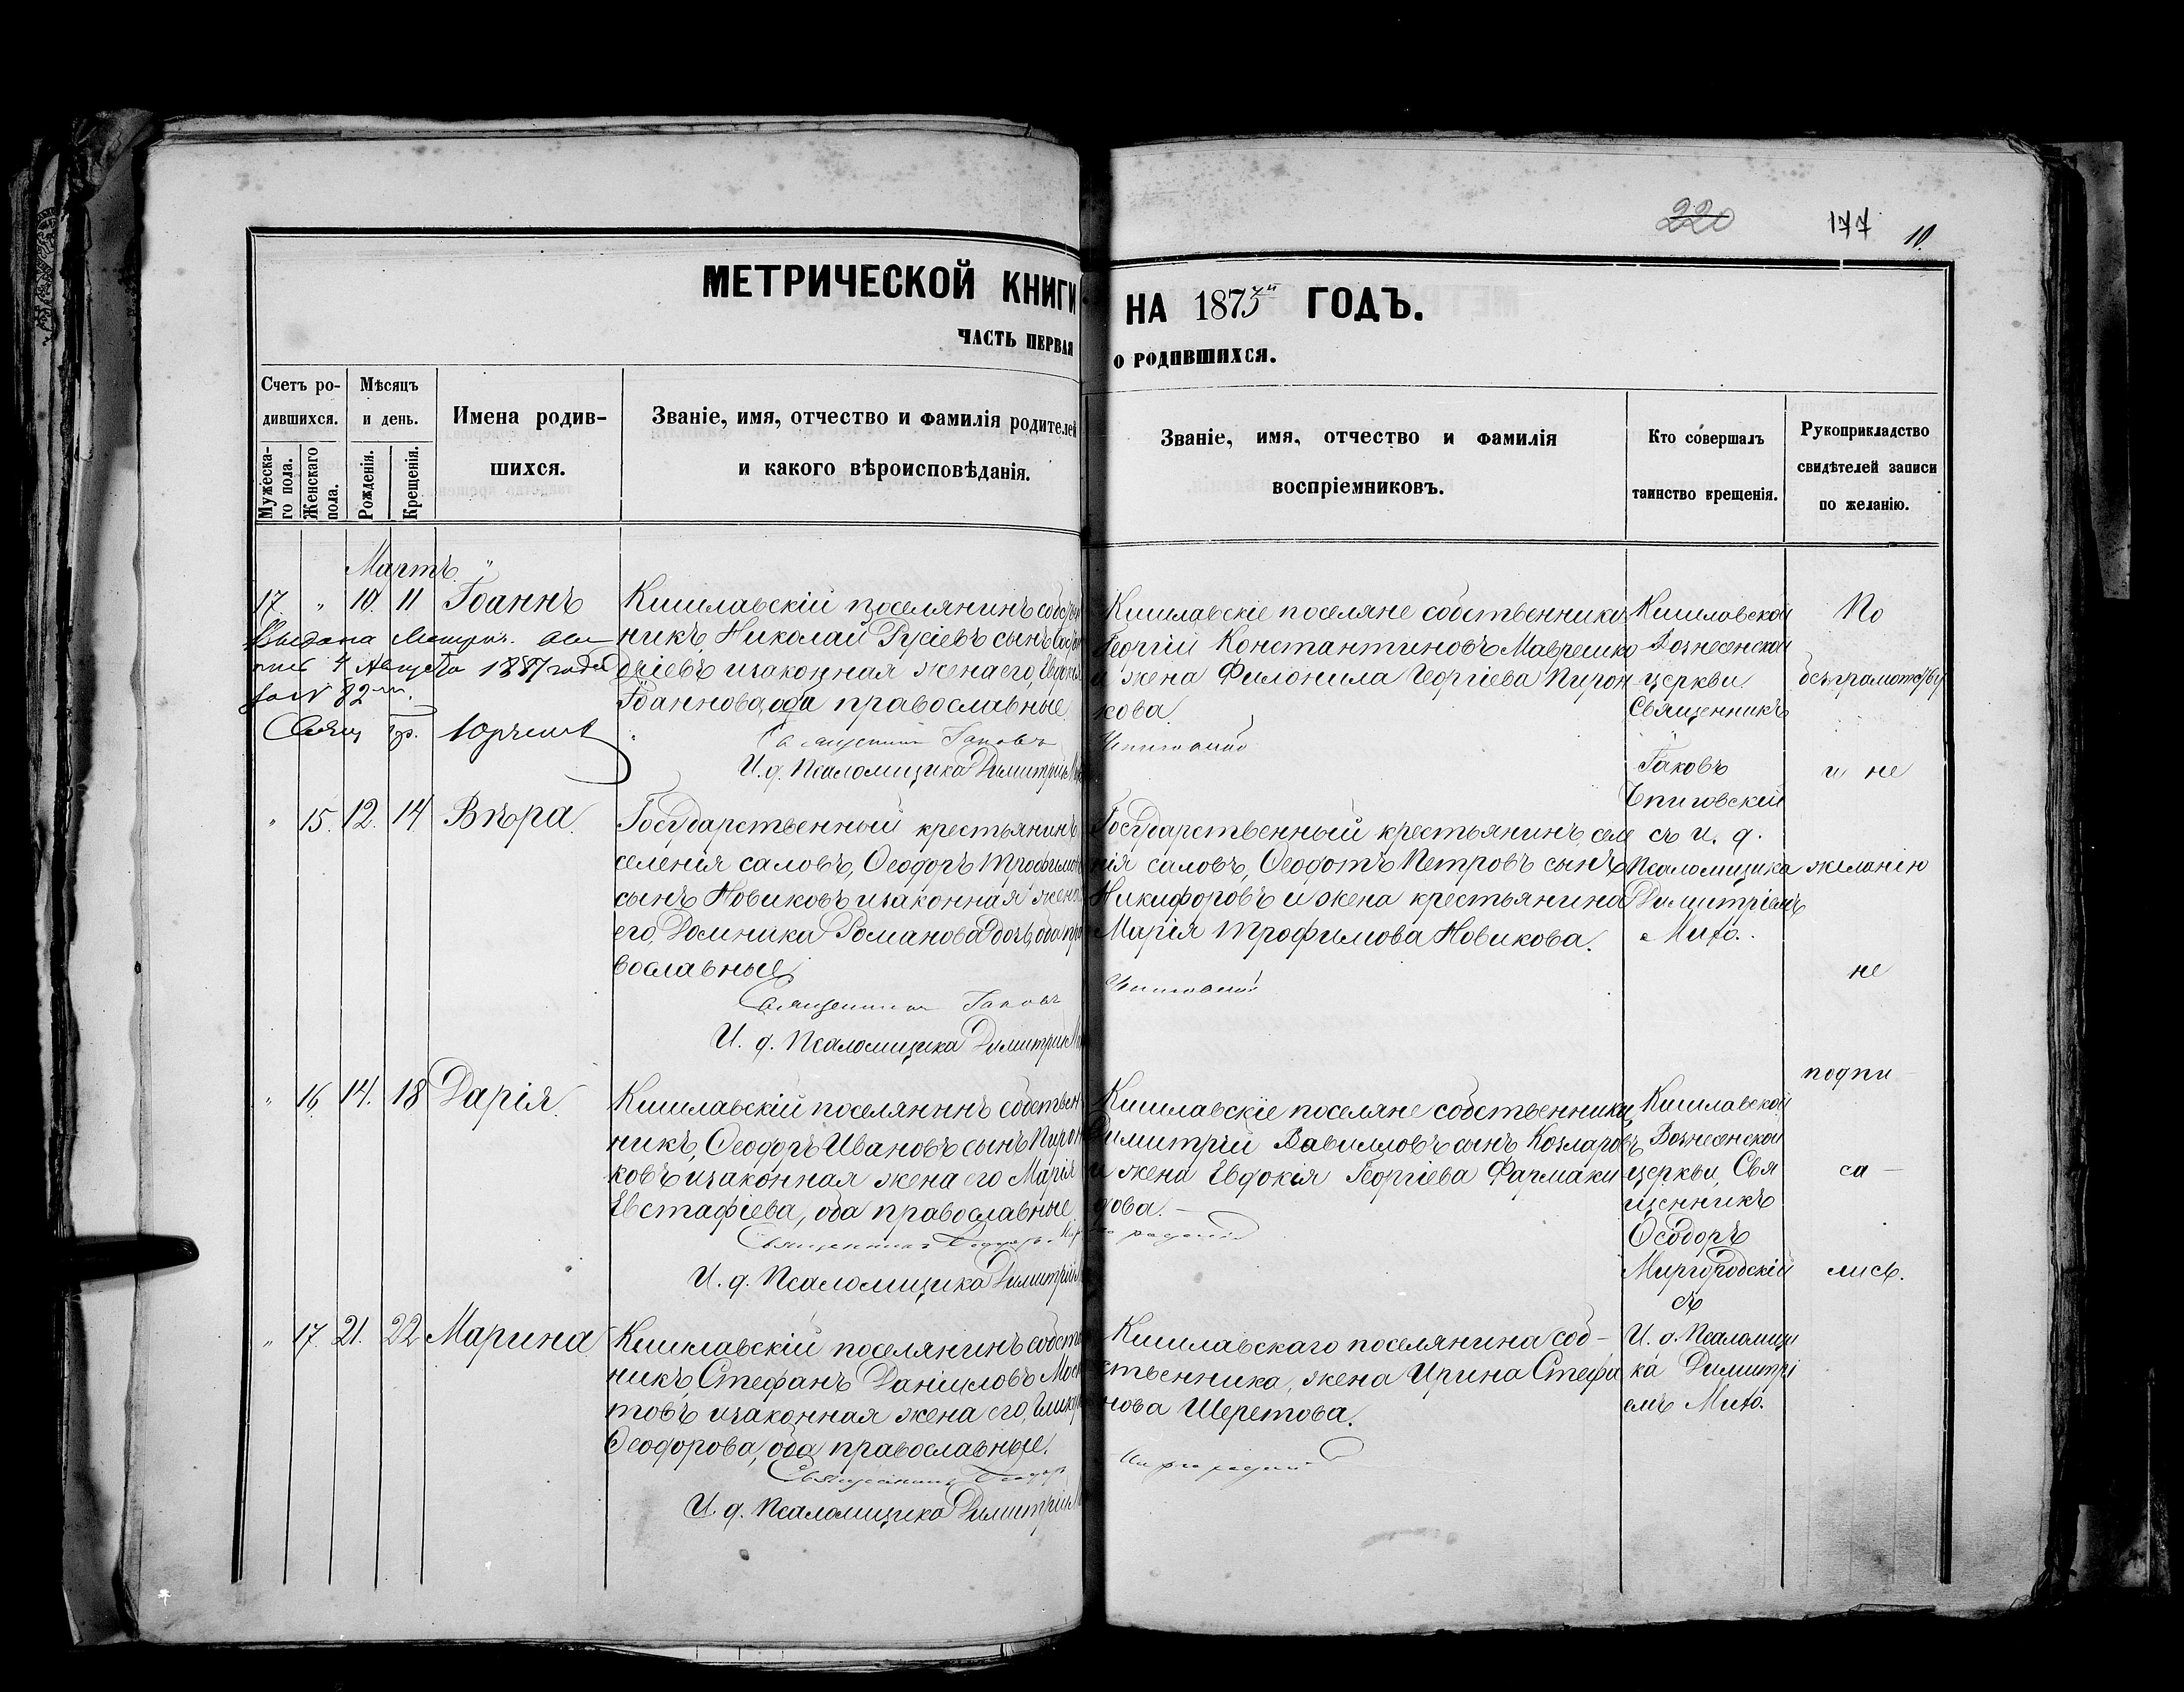 220 177 10.
МЕТРИЧЕСКОЙ КНИГИ НА 1875й ГОДЪ.
ЧАСТЬ ПЕРВАЯ О РОДИВШИХСЯ.
Счетъ родившихся.
Мужеска-
го пола.
Женскаго
пола.
Мѣсяцъ
и день.
Рожденія.
Крещенія.
Имена родив-
шихся.
Званіе, имя, отчество и фамилія родителей
и какого вѣроисповѣданія.
Званіе, имя, отчество и фамилія
воспріемниковъ.
Кто совершалъ
таинство крещенія.
Рукоприкладство
свидѣтелей записи
по желанію.
Мартъ.
17. " 10. 11 Іоаннъ
Выдана Метрич.
4 Августа 1887 года
за N 82
Свящ.
Кишлавскій поселянинъ собствен
никъ, Николай Русіевъ сынъ
и законная жена его,
Іоаннова, оба православные.
Священникъ Іаковъ
И. д. Псаломщика Димитрій
Кишлавскіе поселяне собственники
Георгій Константиновъ Маврешко
и жена Филонила Георгіева Пирон
кова.
Кишлавской
Вознесенской
церкви
Священникъ
Іаковъ
съ И. д.
Псаломщика
Димитріемъ
Мито.
" 15. 12. 14 Вѣра.
Государственный крестьянинъ,
селенія саловъ, Ѳеодоръ Трофимовъ
сынъ Новиковъ и законная жена
его, Домника Романова дочь, оба пра
вославные.
Священникъ Іаковъ
И. д. Псаломщика Димитрій
Государственный крестьянинъ, селе
нія саловъ, Ѳеодотъ Петровъ сынъ
Никифоровъ и жена крестьянина
Марія Трофимова Новикова.
" 16. 14. 18 Дарія.
Кишлавскій поселянинъ собствен
никъ, Ѳеодоръ Ивановъ сынъ Пирон
ковъ и законная жена его Марія
Евстафіева, оба православные
Священникъ Ѳеодоръ
И. д. Псаломщика Димитрій
Кишлавскіе поселяне собственники,
Димитрій Вавиловъ сынъ Козларовъ
и жена Евдокія Георгіева Фармаки
дова.
Кишлавской
Вознесенской
церкви, Свя
щенникъ
Ѳеодоръ
Миргородскій
съ
И. д. Псаломщи
ка Димитрі
емъ Мито.
" 17. 21. 22 Марина
Кишлавскій поселянинъ собств
никъ, Стефанъ Даниловъ
товъ и законная жена его,
Ѳеодорова, оба православные.
Священникъ Ѳеодоръ
И. д. Псаломщика Димитрій
Кишлавскаго поселянина соб-
ственника, жена Ирина Стефа
нова Шеретова.
По
безграмотству
и не
желанію
не
подпи-
са-
лись.